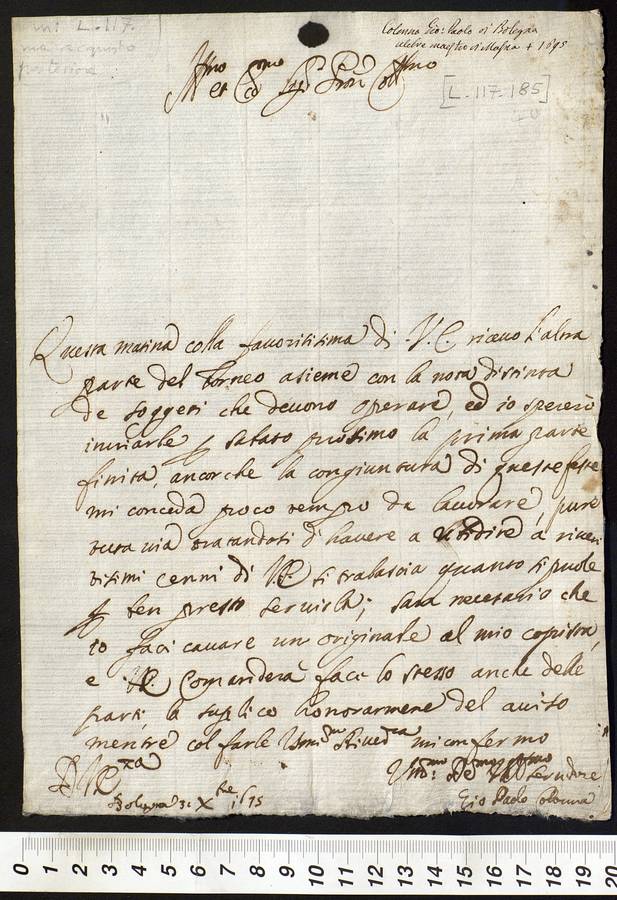 mi L. 117.
Colonna Gio: Paolo di Bologna
celebre maestro di Musica + 1695
[L.117-185]
Questa matina colla fauoritisima di V.E. riceuo l'altra
parte del Torneo asieme con la nota distinta
de soggeti che deuono operare, ed io spererò
inuiarle p sabato prosimo la prima parte
finita, ancorche la congiuntura di queste feste
mi conceda poco tempo da lauorare, pure
tuta uia tratandosi di hauere a vbidire a riueri
tisimi cenni di VE. si tralascia quanto si puole
p ben presto seruirla; sara necesario che
io faci cauare un originale al mio copista,
e VE Comanderà faci lo stesso anche delle
parti, la suplico honorarmene del auiso
mentre col farle Umi.ma Riued.za mi confermo
D VE.za
Bologna X.bre
Seruidore
Gio Paolo Colonna
0 1 2 3 4 5 6 7 8 9 10 11 12 13 14 15 16 17 18 19 20